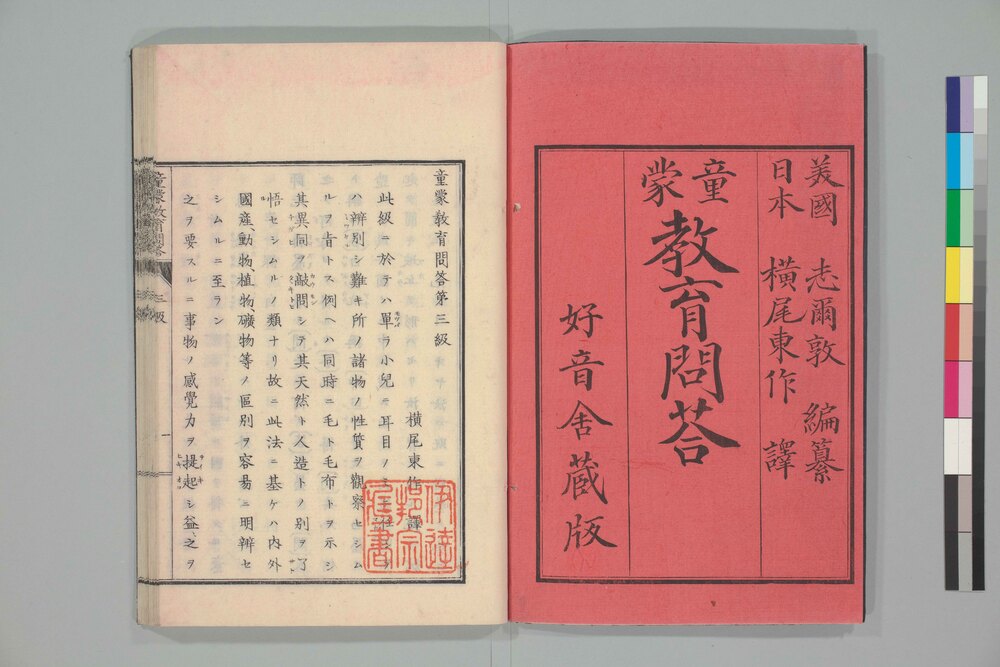 美國 志爾敦 編纂
日本 横尾東作 譯
童蒙教育問荅
好音舎蔵版
童蒙教育問答第三級
横尾東作 譯
此級ニ於テハ單ラ小兒ヲ耳目ノミニ
ハ辨別シ難キ所ノ諸物ノ性質ヲ觀察セシム
ルヲ旨トス例ヘハ同時ニ毛ト毛布トヲ示シ
其異同ヲ敲問シテ其天然ト人造トノ別ヲ了
悟セシムルノ類ナリ故ニ此法ニ基ケハ内外
國産、動物、植物、礦物等ノ區別ヲ容易ニ明辨セ
シムルニ至ラン
之ヲ要スルニ事物ノ感覺力ヲ提起シ益〻之ヲ
童蒙教育問答
三級
一
伊達
邦宗
蔵書